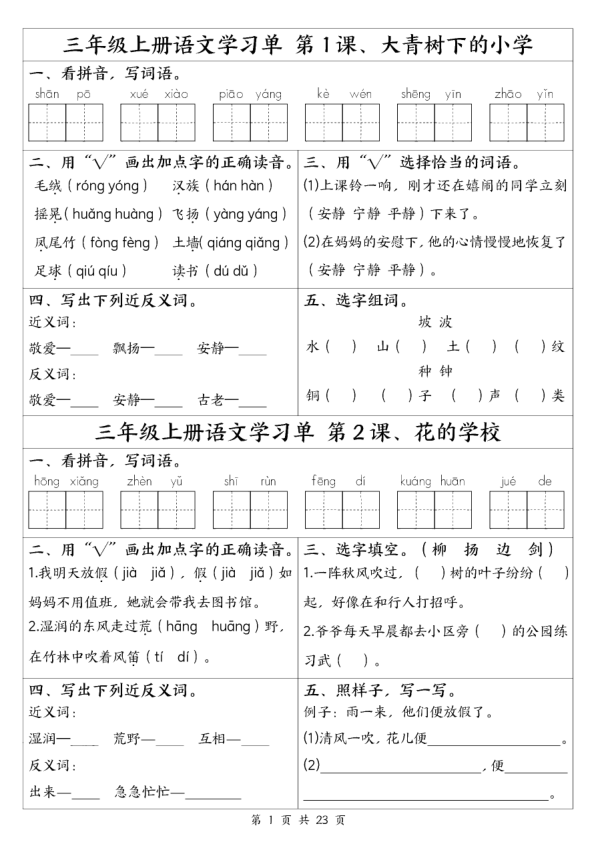 三年级上册语文学习单 第1课、大青树下的小学
一、看拼音，写词语。
shān pō xué xiào piāo yáng kè wén shēng yīn zhāo yǐn
二、用“√”画出加点字的正确读音。
毛绒（róng yóng） 汉族（hán hàn）
摇晃（huǎng huàng） 飞扬（yàng yáng）
凤尾竹（fòng fèng） 土墙（qiáng qiǎng）
足球（qiú qíu） 读书（dú dǔ）
三、用“√”选择恰当的词语。
(1)上课铃一响，刚才还在嬉闹的同学立刻
（安静 宁静 平静）下来了。
(2)在妈妈的安慰下，他的心情慢慢地恢复了
（安静 宁静 平静）。
四、写出下列近反义词。
近义词：
敬爱—____ 飘扬—____ 安静—____
反义词：
敬爱—____ 安静—____ 古老—____
五、选字组词。
坡 波
水（ ） 山（ ） 土（ ） （ ）纹
种 钟
铜（ ） （ ）子 （ ）声 （ ）类
三年级上册语文学习单 第2课、花的学校
一、看拼音，写词语。
hōng xiǎng zhèn yǔ shī rùn fēng dí kuáng huān jué de
二、用“√”画出加点字的正确读音。
1.我明天放假（jià jiǎ），假（jià jiǎ）如
妈妈不用值班，她就会带我去图书馆。
2.湿润的东风走过荒（hāng huāng）野，
在竹林中吹着风笛（tí dí）。
三、选字填空。（柳 扬 边 剑）
1.一阵秋风吹过，（ ）树的叶子纷纷（ ）
起，好像在和行人打招呼。
2.爷爷每天早晨都去小区旁（ ）的公园练
习武（ ）。
四、写出下列近反义词。
近义词：
湿润—____ 荒野—____ 互相—____
反义词：
出来—____ 急急忙忙—________
五、照样子，写一写。
例子：雨一来，他们便放假了。
(1)清风一吹，花儿便________________。
(2)____________________，便________
______________________________。
第 1 页 共 23 页